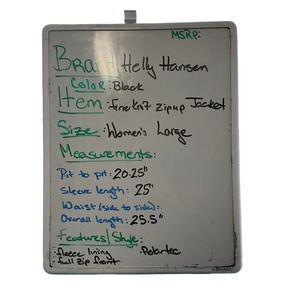 MSRP:
Brand: Helly Hansen
Color: Black
Item: fine knit zip up Jacket
Size: Women's Large
Measurements:
Pit to pit: 20.25"
Sleeve length: 25"
Waist (side to side):
Overall length: 25.5"
Features/Style:
· fleece lining · Polartec
· full zip front